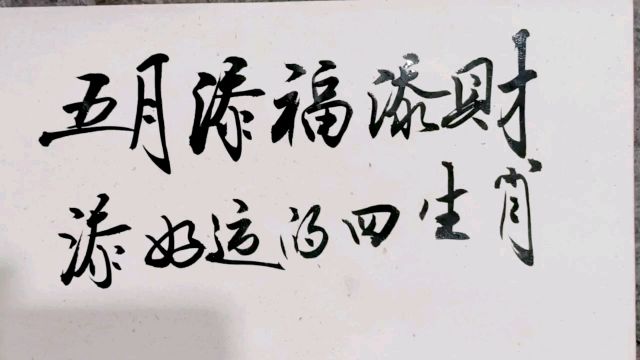 五月添福添財
添好运的四生肖